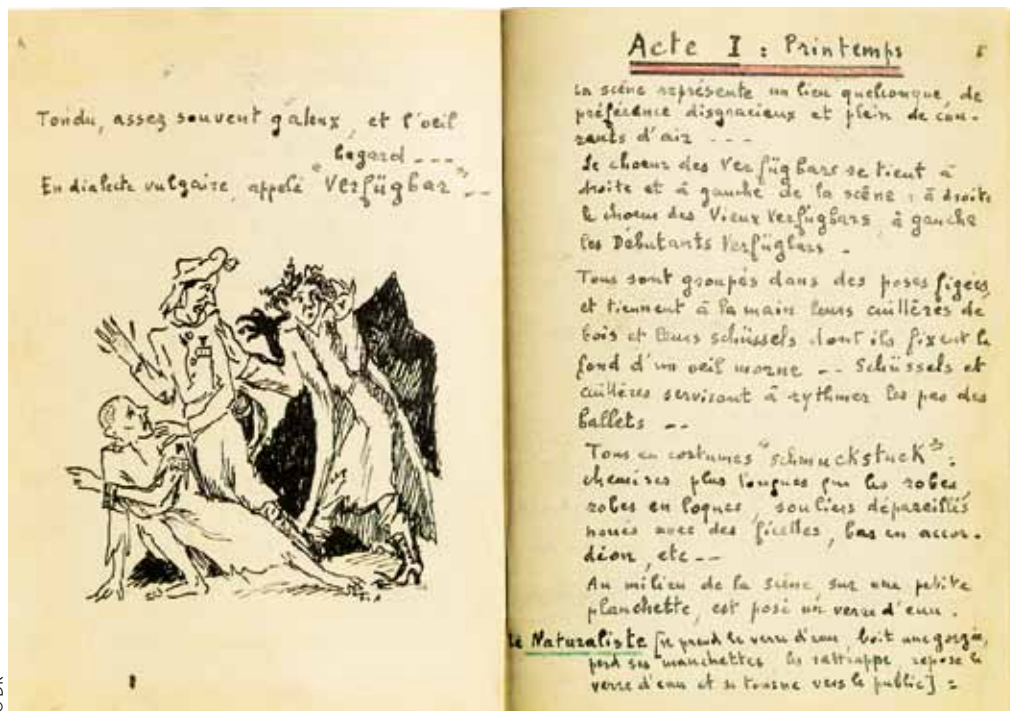 Tondu, assez souvent galeux, et l'oeil
hagard ---
En dialecte vulgaire, appelé "Verfügbar" --
Acte I : Printemps
5
La scène représente un lieu quelconque, de
préférence disgracieux et plein de cou-
rants d'air ---
Le choeur des Verfügbars se tient à
droite et à gauche de la scène : à droite
le choeur des Vieux Verfügbars, à gauche
les Débutants Verfügbars -
Tous sont groupés dans des poses figées,
et tiennent à la main leurs cuillères de
bois et leurs schüssels dont ils fixent le
fond d'un oeil morne -- Schüssels et
cuillères serviront à rythmer les pas des
ballets --
Tous en costumes "schmuckstuck" :
chemises plus longues que les robes,
robes en loques, souliers dépareillés
noués avec des ficelles, bas en accor-
déon, etc --
Au milieu de la scène, sur une petite
planchette, est posé un verre d'eau.
Le Naturaliste [il prend le verre d'eau, boit une gorgée,
perd ses manchettes, les rattrappe, repose le
verre d'eau et se tourne vers le public] :
© DR